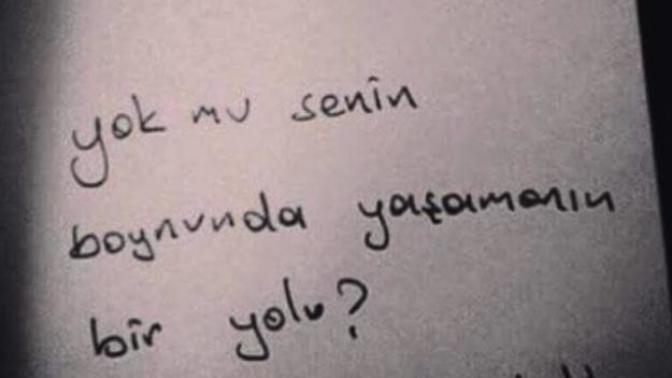 yok mu senin
boynunda yaşamanın
bir yolu?